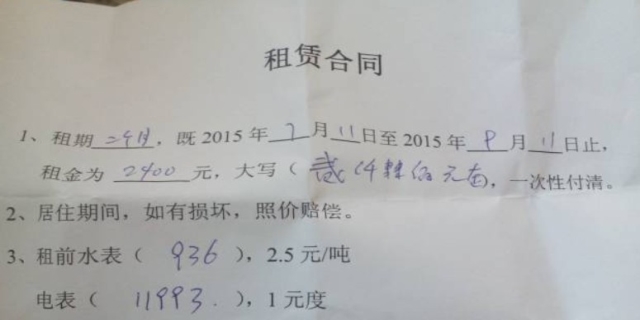 租赁合同
1、租期二个月，既 2015 年 7 月 11 日至 2015 年 9 月 11 日止，
租金为 2400 元，大写（ 贰仟肆佰元整），一次性付清。
2、居住期间，如有损坏，照价赔偿。
3、租前水表（ 936 ），2.5 元/吨
电表（ 11993. ），1 元度